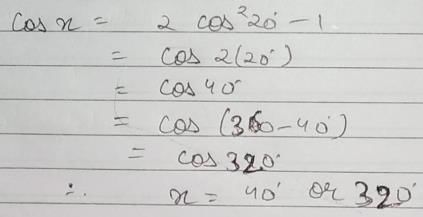 cos x = 2 cos²20° - 1
= cos 2(20°)
= cos 40°
= cos (360 - 40°)
= cos 320°
∴ x = 40° or 320°